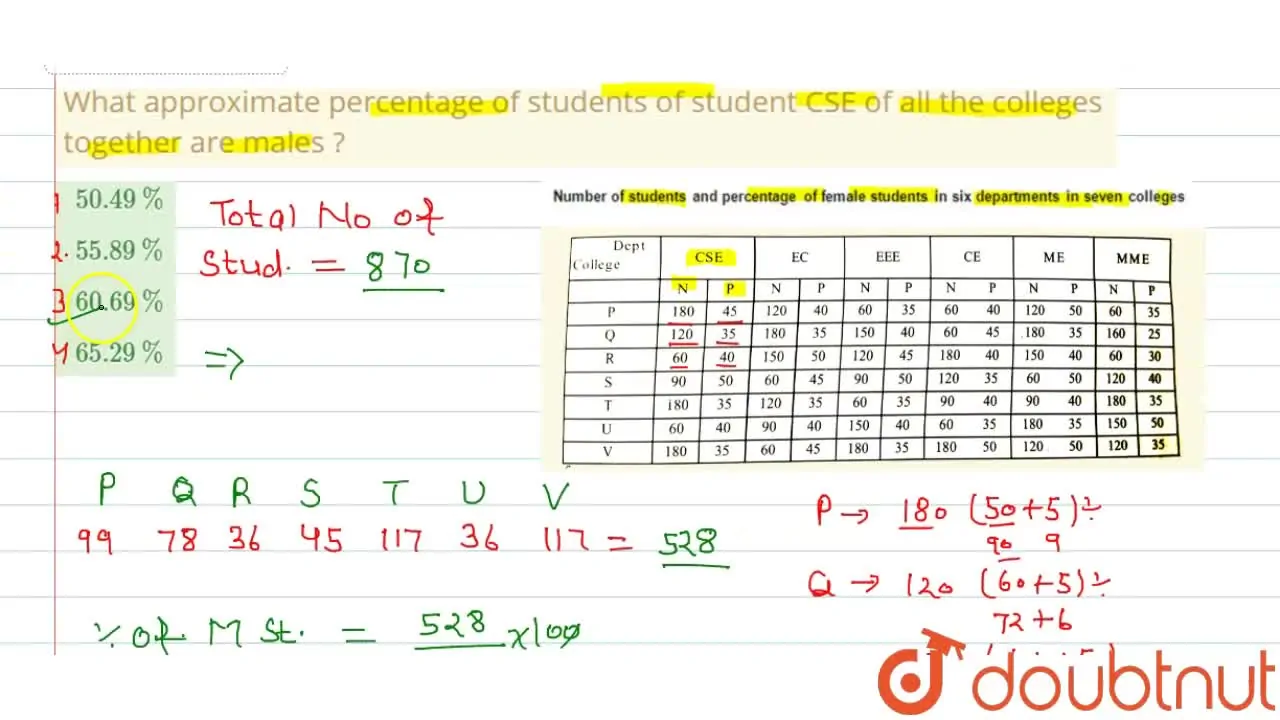 What approximate percentage of students of student CSE of all the colleges
together are males ?
1 50.49 %
2. 55.89 %
3 60.69 %
4 65.29 %
Total No of
Stud. = 870
=>
Number of students and percentage of female students in six departments in seven colleges
Dept CSE EC EEE CE ME MME
College
N P N P N P N P N P N P
P 180 45 120 40 60 35 60 40 120 50 60 35
Q 120 35 180 35 150 40 60 45 180 35 160 25
R 60 40 150 50 120 45 180 40 150 40 60 30
S 90 50 60 45 90 50 120 35 60 50 120 40
T 180 35 120 35 60 35 90 40 90 40 180 35
U 60 40 90 40 150 40 60 35 180 35 150 50
V 180 35 60 45 180 35 180 50 120 50 120 35
P Q R S T U V
99 78 36 45 117 36 117 = 528
% of M St. = 528 x100
P → 180 (50+5)%
90 9
Q → 120 (60+5)%
72+6
doubtnut